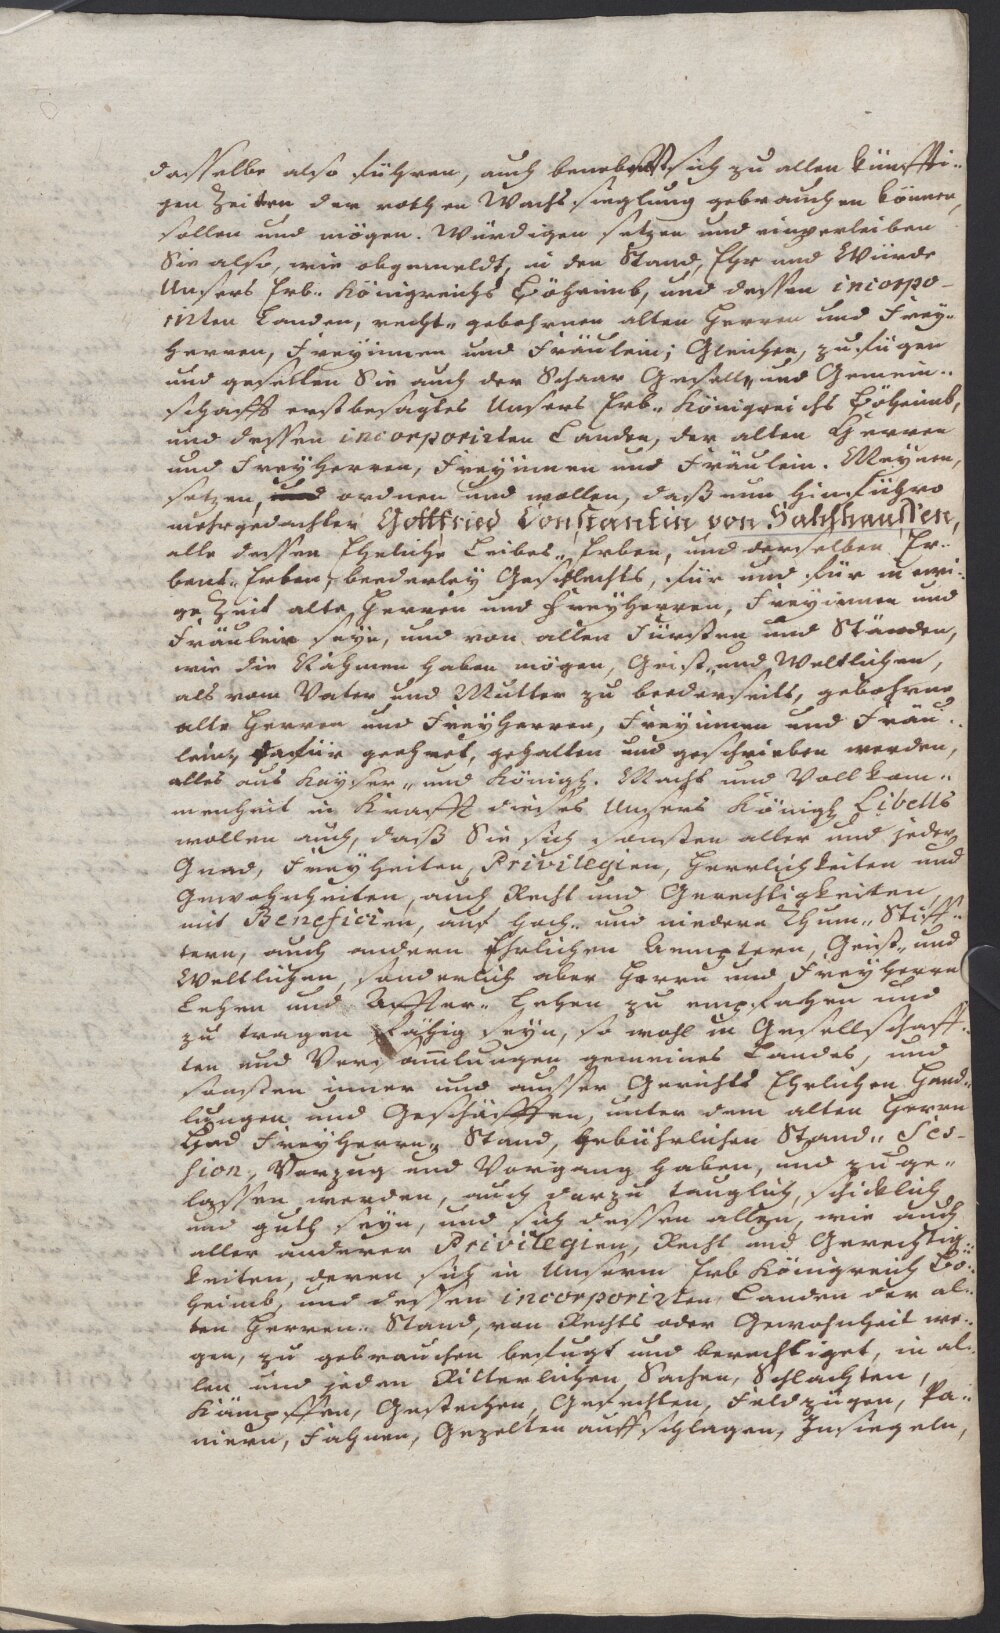 dasselbe also führen, auch benebst sich zu allen künffti-
gen Zeiten der rothen Wachs sieglung gebrauchen können,
sollen und mögen. Würdigen setzen und einverleiben
Sie also, wie obgemeldt, in den Stand, Ehr und Würde
Unsers Erb-Königreichs Böheimb, und dessen incorpo-
rirten Landen, recht-gebohrnen alten Herren und Frey-
herren, Freyinnen und Fräulein; Gleichen, zu fügen
und gesellen Sie auch der Schaar Gesell- und Gemein-
schafft erstbesagtes Unsers Erb-Königreichs Böheimb,
und dessen incorporirten Landen, der alten Herren
und FreyHerren, Freyinnen und Fräulein. Meynen,
setzen, ordnen und wollen, daß nun hinführo
mehrgedachter Gottfried Constantin von Sahlhaussen,
alle dessen Eheliche Leibes-Erben, und derselben Er-
bens-Erben, beederley Geschlechts, für und für in ewi-
ge Zeit alte Herren und FreyHerren, Freyinnen und
Fräulein seyn, und von allen Fürsten und Ständen,
wie die Nahmen haben mögen, Geist- und Weltlichen,
als vom Vater und Mutter zu beederseits, gebohrne
alte Herren und FreyHerren, Freyinnen und Fräu-
lein, dafür geehret, gehalten und geschrieben werden,
alles aus Kayser- und Königl. Macht und Vollkom-
menheit in Krafft dieses Unsers Königl. Libells
wollen auch, daß Sie sich sonsten aller und jeder
Gnad, Freyheiten, Privilegien, Herrlichkeiten und
Gewohnheiten, auch Recht und Gerechtigkeiten,
mit Beneficien, auf Hoch- und niedern Thum-Stiff-
tern, auch andern Ehrlichen Aemptern, Geist- und
Weltlichen, sonderlich aber Herrn und FreyHerrn
Lehen und Affter-Lehen zu empfahen und
zu tragen fähig seyn, so wohl in Gesellschaff-
ten und Versammlungen gemeines Landes, und
sonsten inner und ausser Gerichts Ehrlichen Hand-
lungen und Geschäfften, unter dem alten Herrn
und FreyHerrn-Stand, gebührlichen Stand-Ses-
sion, Vorzug und Vorgang haben, und zu ge-
lassen werden, auch darzu tauglich, schicklich
und guth seyn, und sich dessen allen, wie auch
aller anderer Privilegien, Recht und Gerechtig-
keiten, deren sich in Unserm Erb Königreich Bö-
heimb, und dessen incorporirten Landen der al-
ten Herren-Stand, von Rechts oder Gewohnheit we-
gen, zu gebrauchen befugt und berechtiget, in al-
len und jeden Ritterlichen Sachen, Schlachten,
Kämpffen, Gestechen, Gefechten, Feldzügen, Pa-
niern, Fahnen, Gezelten auffschlagen, Insiegeln,